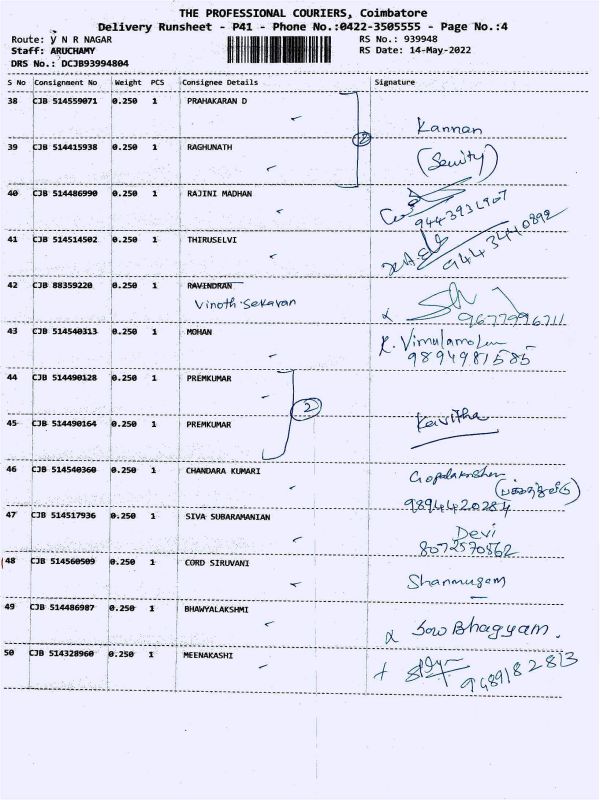 THE PROFESSIONAL COURIERS, Coimbatore
Delivery Runsheet - P41 - Phone No.:0422-3505555 - Page No.:4
Route: y N R NAGAR RS No.: 939948
Staff: ARUCHAMY RS Date: 14-May-2022
DRS No.: DCJB93994804
S No Consignment No Weight PCS Consignee Details Signature
38 CJB 514559071 0.250 1 PRAHAKARAN D
Kannan
2
39 CJB 514415938 0.250 1 RAGHUNATH
40 CJB 514486990 0.250 1 RAJINI MADHAN
9443931907
41 CJB 514514502 0.250 1 THIRUSELVI
9443440892
42 CJB 88359220 0.250 1 RAVINDRAN
Vinoth Sekaran
9677996711
43 CJB 514540313 0.250 1 MOHAN
9894981585
44 CJB 514490128 0.250 1 PREMKUMAR
2
45 CJB 514490164 0.250 1 PREMKUMAR Kavitha
46 CJB 514540360 0.250 1 CHANDARA KUMARI
9894420284
47 CJB 514517936 0.250 1 SIVA SUBARAMANIAN Devi
8072570562
48 CJB 514560509 0.250 1 CORD SIRUVANI Shanmugam
49 CJB 514486987 0.250 1 BHAWYALAKSHMI Sow Bhagyam.
50 CJB 514328960 0.250 1 MEENAKASHI
9489182813